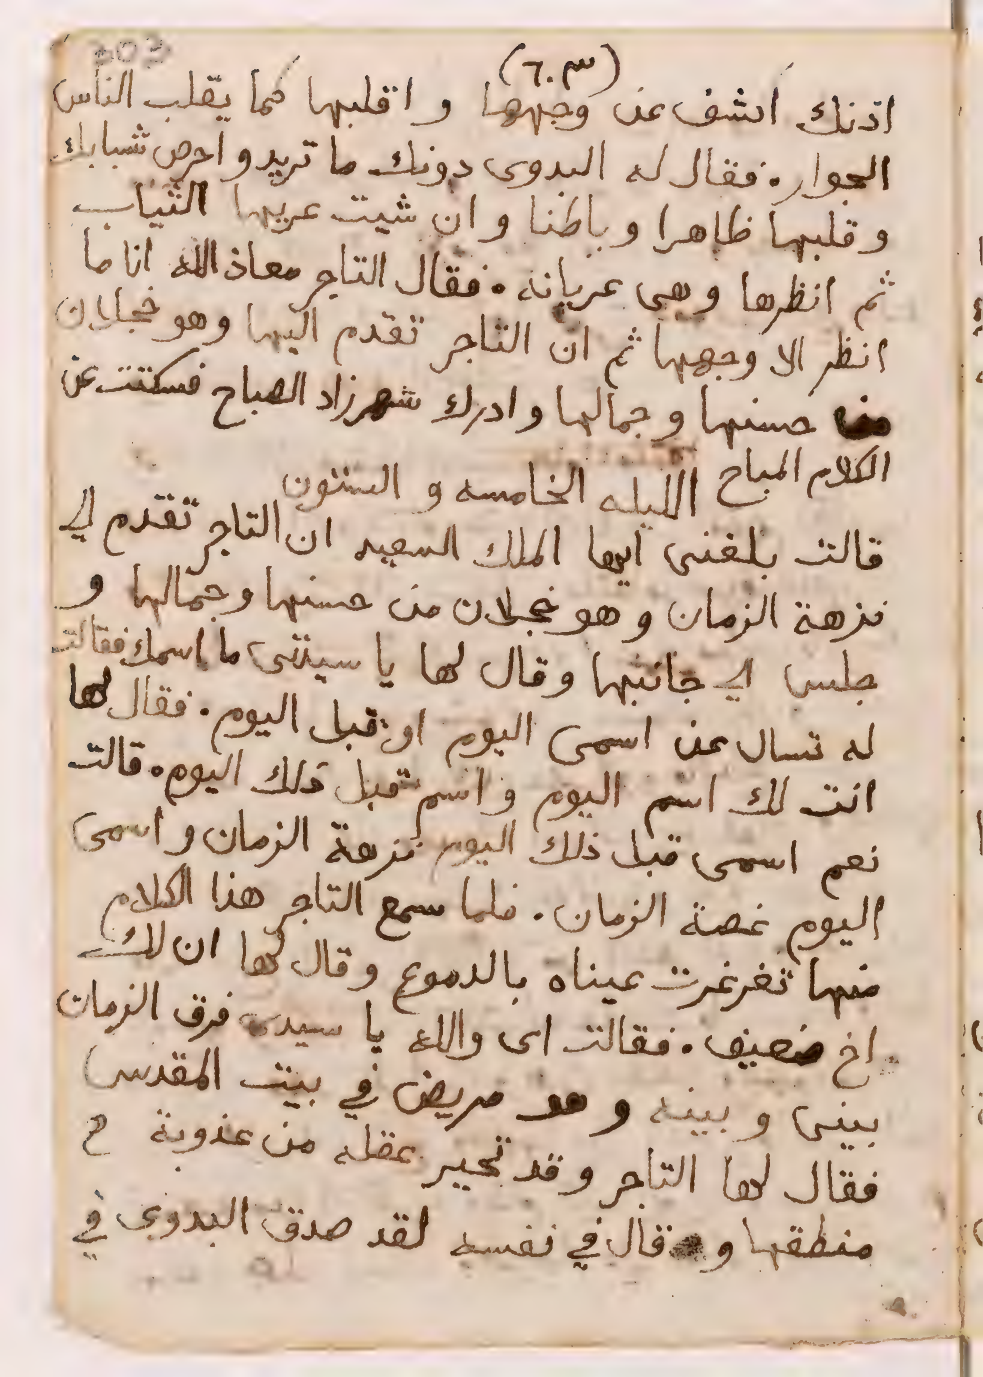 203
(٦٠٣)
اذنك اكشف عن وجهها و اقلبها كما يقلب الناس
الجوار. فقال له البدوى دونك ما تريد و احرص شبابك
و قلبها ظاهرا و باطنا و ان شيت عريها الثياب
ثم انظرها و هى عريانه. فقال التاجر معاذ الله انا ما
انظر الا وجهها ثم ان التاجر تقدم اليها و هو خجلان
من حسنها و جمالها و ادرك شهرزاد الصباح فسكتت عن
الكلام المباح الليله الخامسه و الستون
قالت بلغنى ايها الملك السعيد ان التاجر تقدم الي
نزهة الزمان و هو خجلان من حسنها و جمالها و
جلس الي جانبها و قال لها يا سيدتى ما اسمك فقالت
له تسال عن اسمى اليوم او قبل اليوم. فقال لها
انت لك اسم اليوم و اسم قبل ذلك اليوم. قالت
نعم اسمى قبل ذلك اليوم نزهة الزمان و اسمى
اليوم غصة الزمان. فلما سمع التاجر هذا الكلام
منها تغرغرت عيناه بالدموع و قال لها ان لك
اخ ضعيف. فقالت اى والله يا سيدى فرق الزمان
بينى و بينه و هو مريض في بيت المقدس
فقال لها التاجر و قد تحير عقله من عذوبة
منطقها و قال في نفسه لقد صدق البدوى في